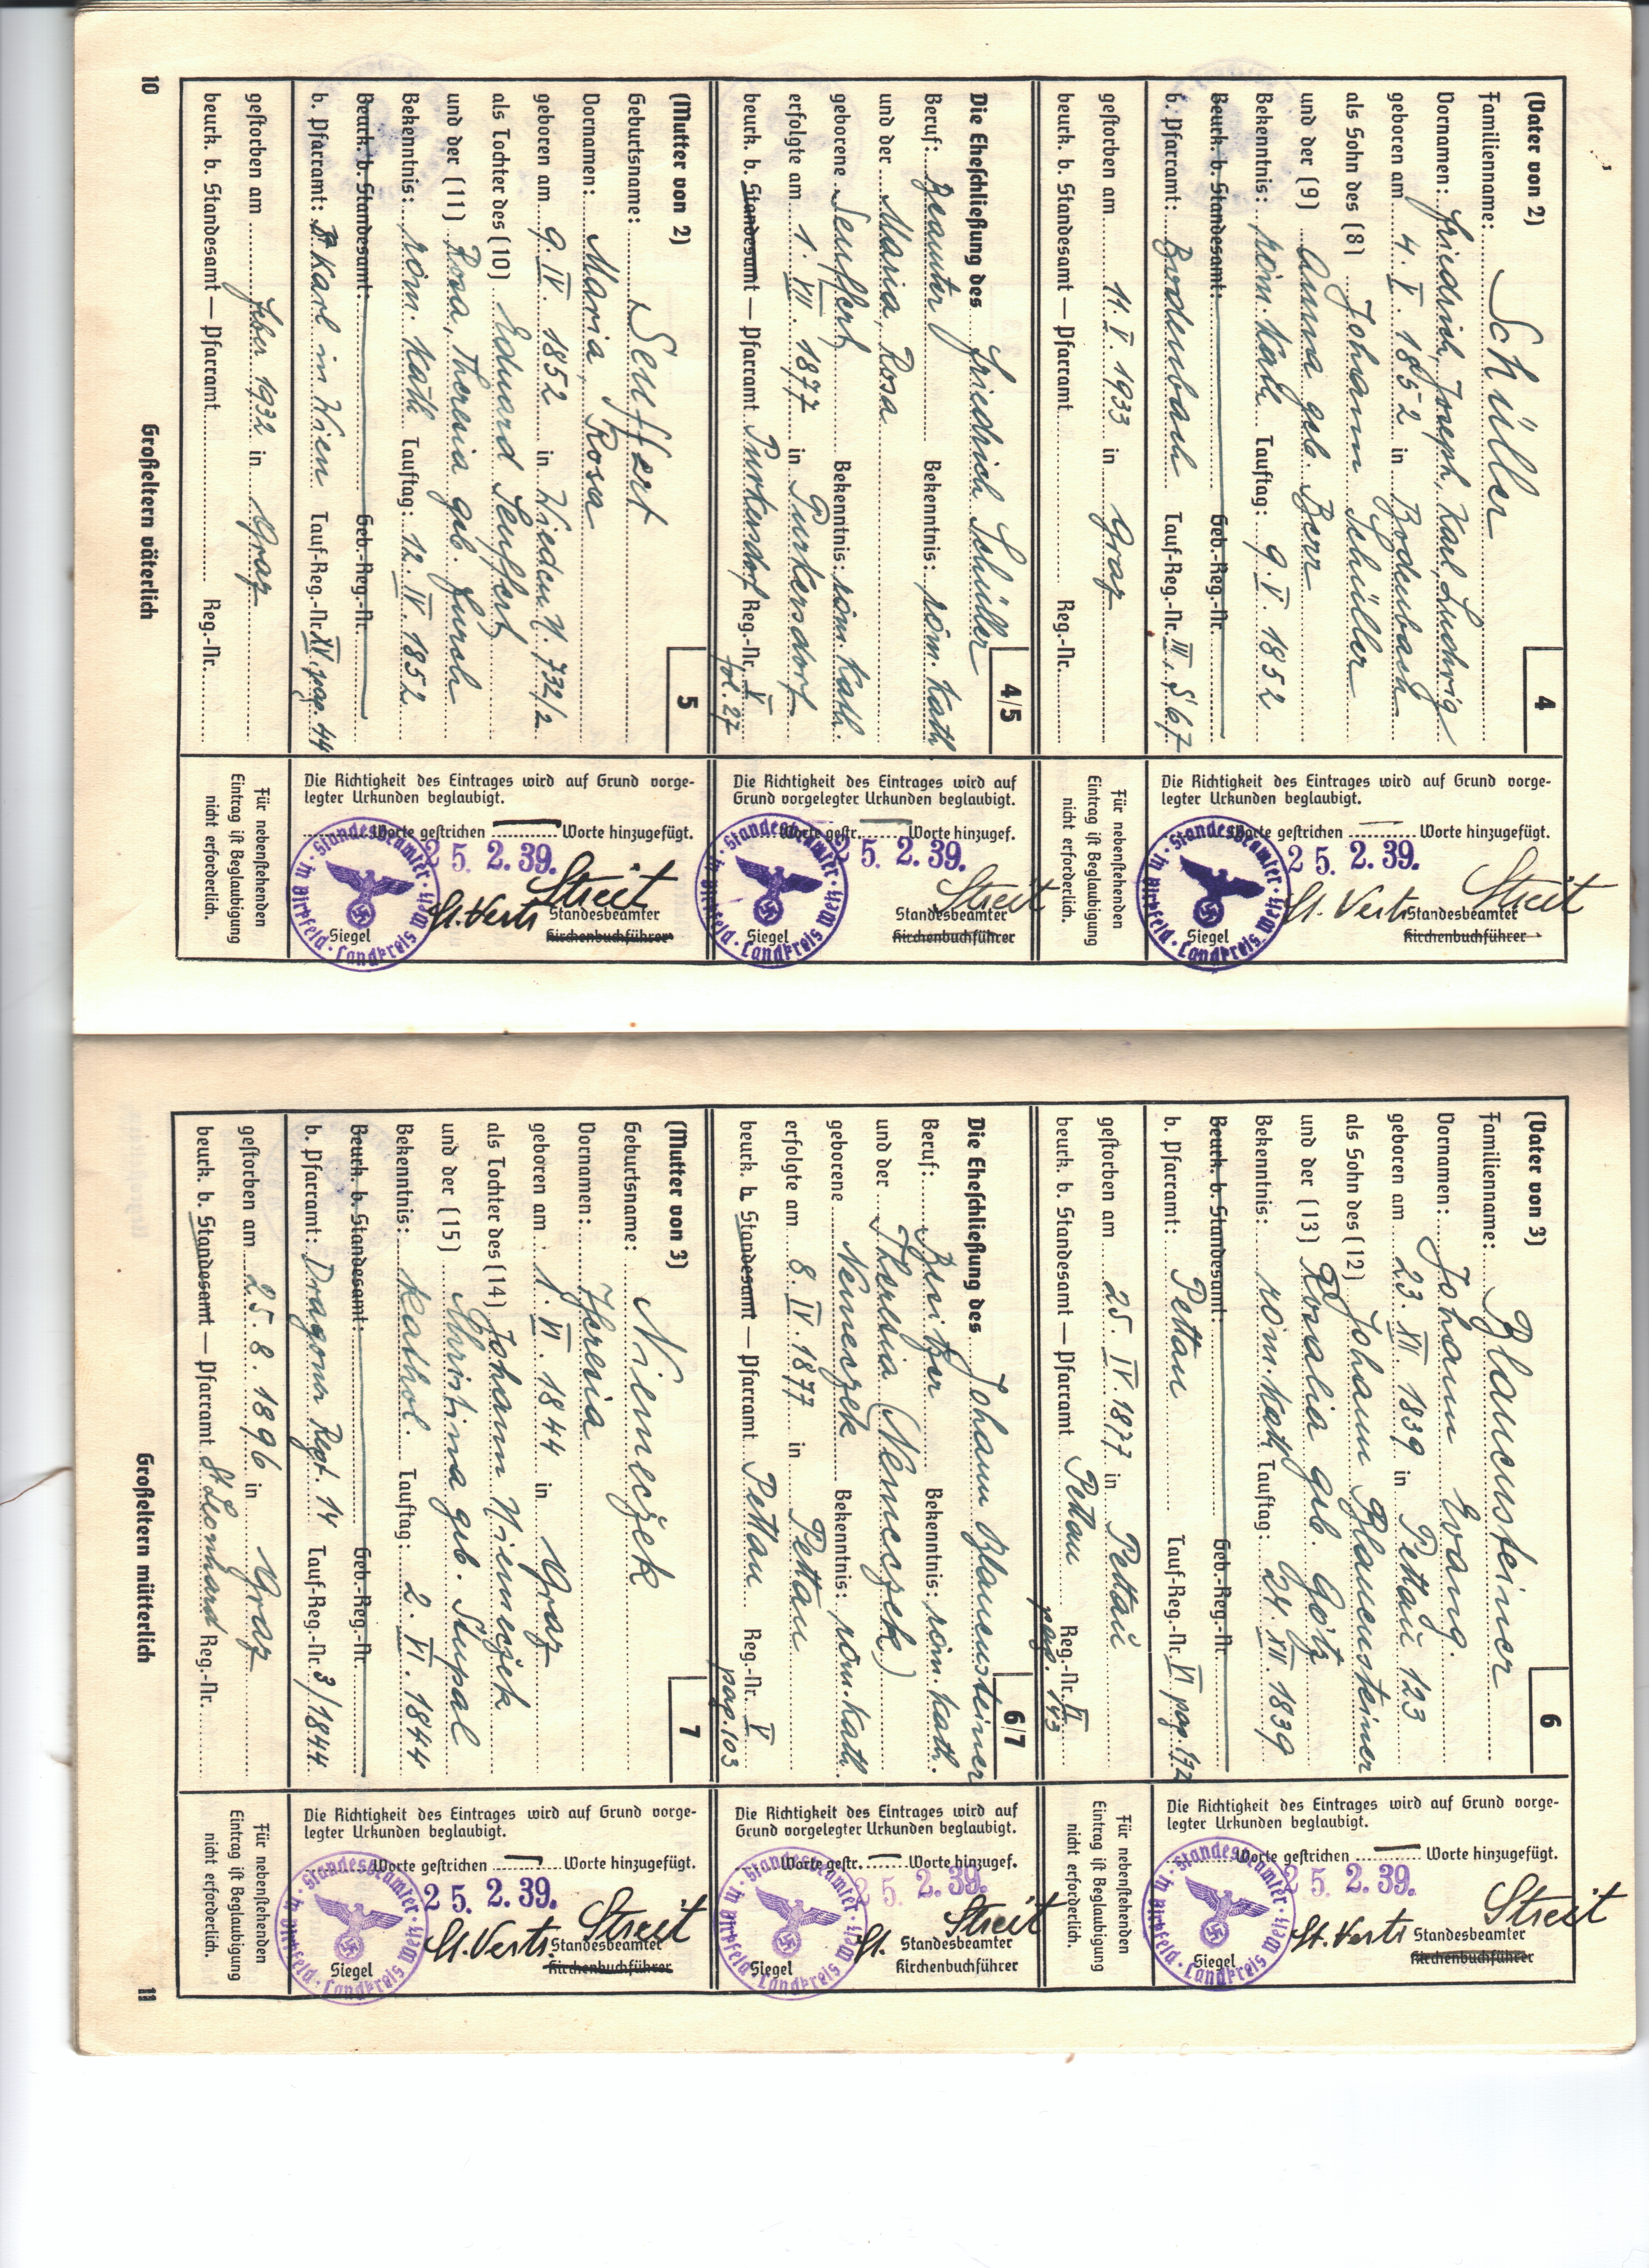 (Vater von 2)
4
Familienname: Schüller
Vornamen: Friedrich, Joseph, Karl, Ludwig
geboren am 4. V. 1852 in Bodenbach
als Sohn des (8) Johann Schüller
und der (9) Anna geb. Berr
Bekenntnis: röm. kath. Tauftag: 9. V. 1852
Beurk. b. Standesamt: Geb.-Reg.-Nr.
b. Pfarramt: Bodenbach Tauf-Reg.-Nr. III, S 67
gestorben am 11. V. 1933 in Graz
beurk. b. Standesamt — Pfarramt Reg.-Nr.
Die Richtigkeit des Eintrages wird auf Grund vorge-
legter Urkunden beglaubigt.
Worte gestrichen — Worte hinzugefügt.
25. 2. 39.
Streit
St. Vertr. Standesbeamter
Siegel Kirchenbuchführer
Standesbeamter in Birkfeld · Landkreis Weiz
Für nebenstehenden
Eintrag ist Beglaubigung
nicht erforderlich.
4/5
Die Eheschließung des Friedrich Schüller
Beruf: Beamter Bekenntnis: röm. kath.
und der Maria, Rosa
geborene Seuffert Bekenntnis: röm. kath.
erfolgte am 1. VII. 1877 in Purkersdorf
beurk. b. Standesamt — Pfarramt Purkersdorf Reg.-Nr. V
fol. 27
Die Richtigkeit des Eintrages wird auf
Grund vorgelegter Urkunden beglaubigt.
Worte gestr. Worte hinzugef.
25. 2. 39.
Streit
Standesbeamter
Siegel Kirchenbuchführer
Standesbeamter in Birkfeld · Landkreis Weiz
(Mutter von 2)
5
Geburtsname: Seuffert
Vornamen: Maria, Rosa
geboren am 9. IV. 1852 in Wieden N. 732/2
als Tochter des (10) Eduard Seuffert
und der (11) Rosa, Theresia geb. Fursch
Bekenntnis: röm. kath. Tauftag: 12. IV. 1852
Beurk. b. Standesamt: Geb.-Reg.-Nr.
b. Pfarramt: St Karl in Wien Tauf-Reg.-Nr. XV, pag. 44
gestorben am Feber 1932 in Graz
beurk. b. Standesamt — Pfarramt Reg.-Nr.
Die Richtigkeit des Eintrages wird auf Grund vorge-
legter Urkunden beglaubigt.
Worte gestrichen — Worte hinzugefügt.
25. 2. 39.
Streit
St. Vertr. Standesbeamter
Siegel Kirchenbuchführer
Standesbeamter in Birkfeld · Landkreis Weiz
Für nebenstehenden
Eintrag ist Beglaubigung
nicht erforderlich.
10
Großeltern väterlich
(Vater von 3)
6
Familienname: Blauensteiner
Vornamen: Johann Evang.
geboren am 23. XII. 1839 in Pettau 123
als Sohn des (12) Johann Blauensteiner
und der (13) Rosalia geb. Götz
Bekenntnis: röm. kath. Tauftag: 24. XII. 1839
Beurk. b. Standesamt: Geb.-Reg.-Nr.
b. Pfarramt: Pettau Tauf-Reg.-Nr. VI pag. 172
gestorben am 25. IV. 1877 in Pettau
beurk. b. Standesamt — Pfarramt Pettau Reg.-Nr. VI
pag. 143
Die Richtigkeit des Eintrages wird auf Grund vorge-
legter Urkunden beglaubigt.
Worte gestrichen — Worte hinzugefügt.
25. 2. 39.
Streit
St. Vertr. Standesbeamter
Siegel Kirchenbuchführer
Standesbeamter in Birkfeld · Landkreis Weiz
Für nebenstehenden
Eintrag ist Beglaubigung
nicht erforderlich.
6/7
Die Eheschließung des Johann Blauensteiner
Beruf: Besitzer Bekenntnis: röm. kath.
und der Theresia (Nemeczek)
geborene Nemeczek Bekenntnis: röm. kath.
erfolgte am 8. IV. 1877 in Pettau
beurk. b. Standesamt — Pfarramt Pettau Reg.-Nr. V
pag. 103
Die Richtigkeit des Eintrages wird auf
Grund vorgelegter Urkunden beglaubigt.
Worte gestr. — Worte hinzugef.
25. 2. 39.
Streit
St. Standesbeamter
Siegel Kirchenbuchführer
Standesbeamter in Birkfeld · Landkreis Weiz
(Mutter von 3)
7
Geburtsname: Niemeczek
Vornamen: Theresia
geboren am 1. VI. 1844 in Graz
als Tochter des (14) Johann Niemeczek
und der (15) Christina geb. Stupal
Bekenntnis: kathol. Tauftag: 2. VI. 1844
Beurk. b. Standesamt: Geb.-Reg.-Nr.
b. Pfarramt: Dragoner Regt. 14 Tauf-Reg.-Nr. 3/1844
gestorben am 25. 8. 1896 in Graz
beurk. b. Standesamt — Pfarramt St Leonhard Reg.-Nr.
Die Richtigkeit des Eintrages wird auf Grund vorge-
legter Urkunden beglaubigt.
Worte gestrichen — Worte hinzugefügt.
25. 2. 39.
Streit
St. Vertr. Standesbeamter
Siegel Kirchenbuchführer
Standesbeamter in Birkfeld · Landkreis Weiz
Für nebenstehenden
Eintrag ist Beglaubigung
nicht erforderlich.
Großeltern mütterlich
11